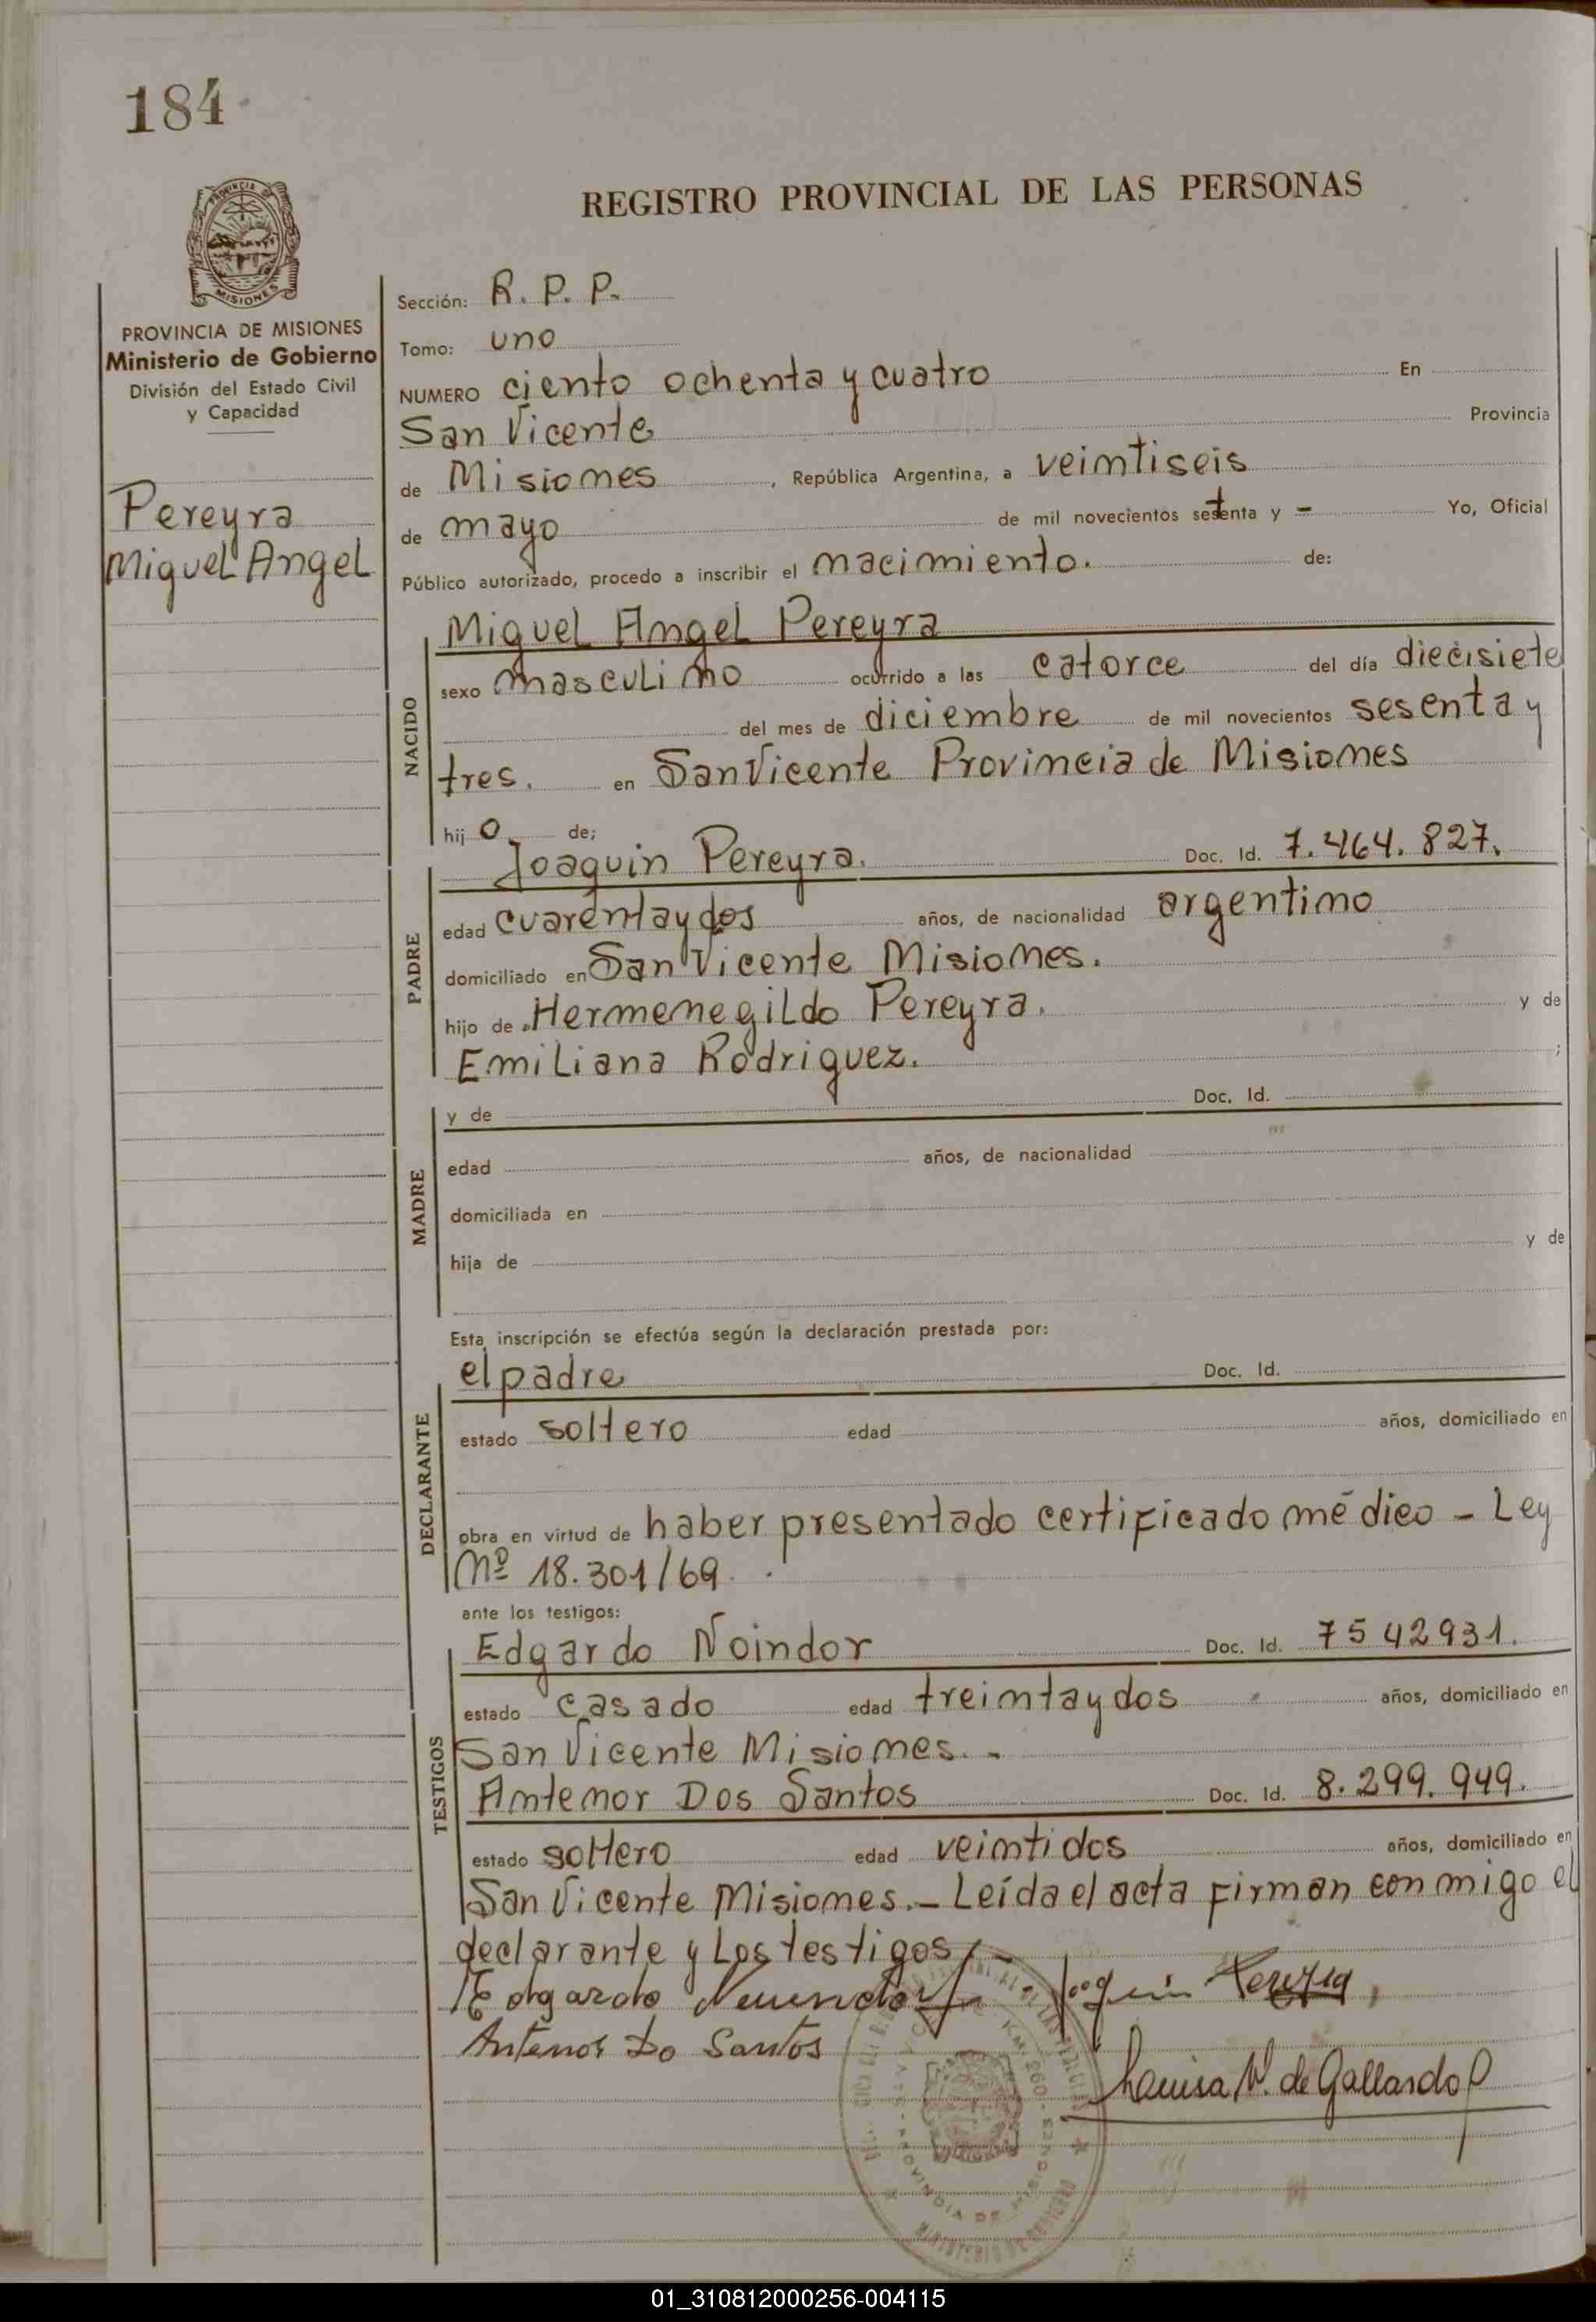 184
REGISTRO PROVINCIAL DE LAS PERSONAS
PROVINCIA DE
MISIONES
PROVINCIA DE MISIONES
Ministerio de Gobierno
División del Estado Civil
y Capacidad
Pereyra
Miguel Angel
Sección: R. P. P.
Tomo: uno
NUMERO ciento ochenta y cuatro En
San Vicente Provincia
de Misiones, República Argentina, a veintiseis
de mayo de mil novecientos setenta y - Yo, Oficial
Público autorizado, procedo a inscribir el nacimiento. de:
NACIDO
Miguel Angel Pereyra
sexo masculino ocurrido a las catorce del día diecisiete
del mes de diciembre de mil novecientos sesenta y
tres. en San Vicente Provincia de Misiones
hijo de;
PADRE
Joaquin Pereyra. Doc. Id. 7.464.827.
edad cuarentaydos años, de nacionalidad argentino
domiciliado en San Vicente Misiones.
hijo de Hermenegildo Pereyra. y de
Emiliana Rodriguez. ;
MADRE
y de Doc. Id.
edad años, de nacionalidad
domiciliada en
hija de y de
Esta inscripción se efectúa según la declaración prestada por:
DECLARANTE
el padre Doc. Id.
estado soltero edad años, domiciliado en
obra en virtud de haber presentado certificado médico - Ley
Nº 18.301/69.
ante los testigos:
TESTIGOS
Edgardo Noindor Doc. Id. 7542931.
estado casado edad treintaydos años, domiciliado en
San Vicente Misiones. -
Antenor Dos Santos Doc. Id. 8.299.949.
estado soltero edad veintidos años, domiciliado en
San Vicente Misiones.- Leída el acta firman conmigo el
declarante y los testigos
Edgardo Joaquin Pereyra
Antenor Do Santos
de Gallardo
PROVINCIA DE MISIONES
01_310812000256-004115